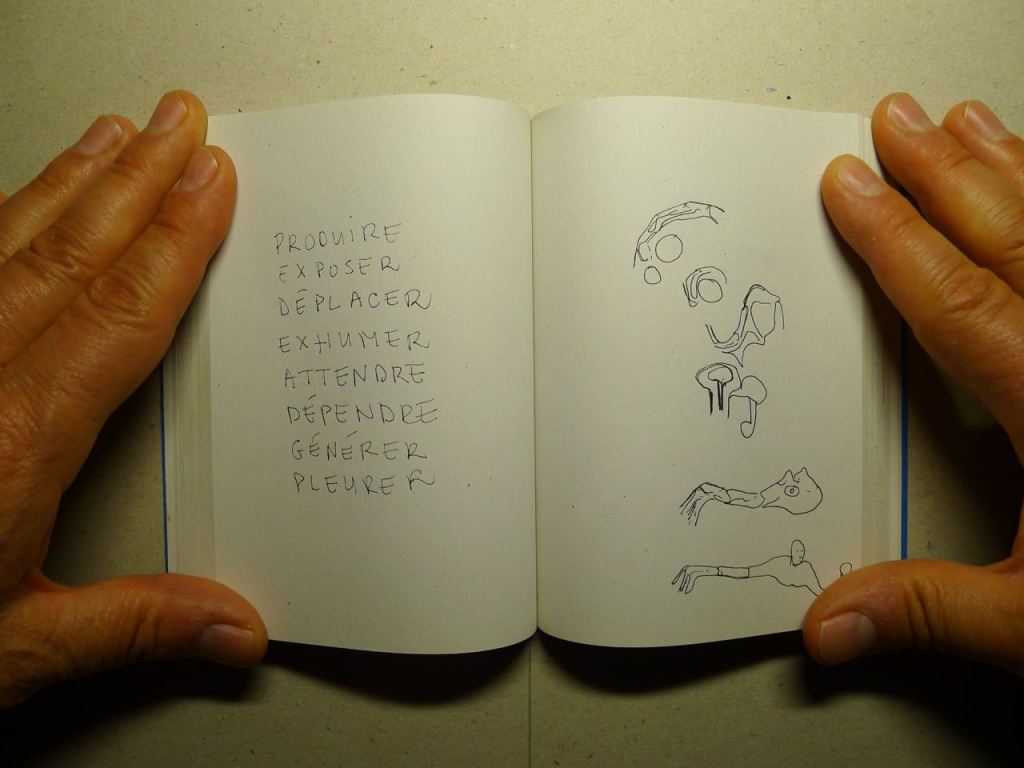 PRODUIRE
EXPOSER
DÉPLACER
EXHUMER
ATTENDRE
DÉPENDRE
GÉNÉRER
PLEURER